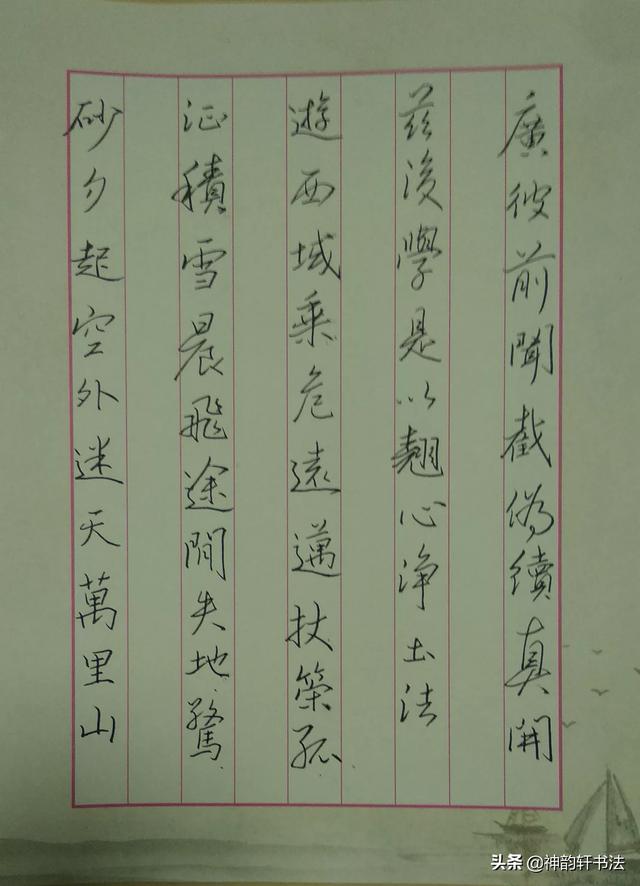 廣彼前聞截偽續真開
茲後學是以翹心淨土法
遊西域乘危遠邁杖策孤
征積雪晨飛途間失地驚
砂夕起空外迷天萬里山
头条 @神韵轩书法